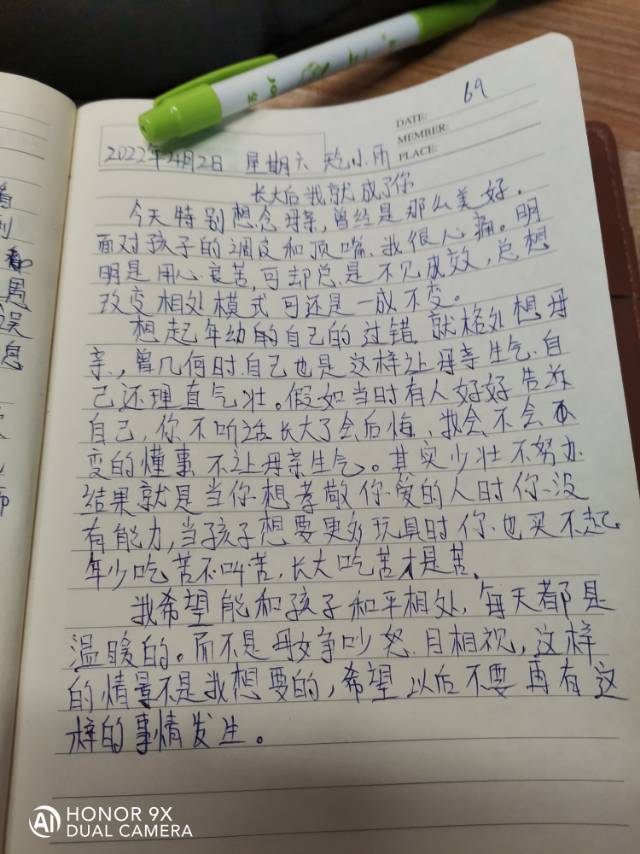 69
DATE:
MEMBER:
PLACE:
2022年4月2日 星期六 小雨
长大后我就成了你
今天特别想念母亲,曾经是那么美好。
面对孩子的调皮和顶嘴、我很心痛。明
明是用心良苦,可却总是不见成效,总想
改变相处模式可还是一成不变。
想起年幼的自己的过错 就格外想母
亲,曾几何时自己也是这样让母亲生气.自
己还理直气壮。假如当时有人好好告诉
自己,你不听话长大了会后悔、我会不会
变的懂事不让母亲生气。其实少壮不努力
结果就是当你想孝敬你爱的人时你没
有能力,当孩子想要更多玩具时你也买不起
年少吃苦不叫苦,长大吃苦才是苦、
我希望能和孩子和平相处,每天都是
温暖的。而不是争吵怒目相视,这样
的情景不是我想要的,希望以后不要再有这
样的事情发生。
AI HONOR 9X
DUAL CAMERA